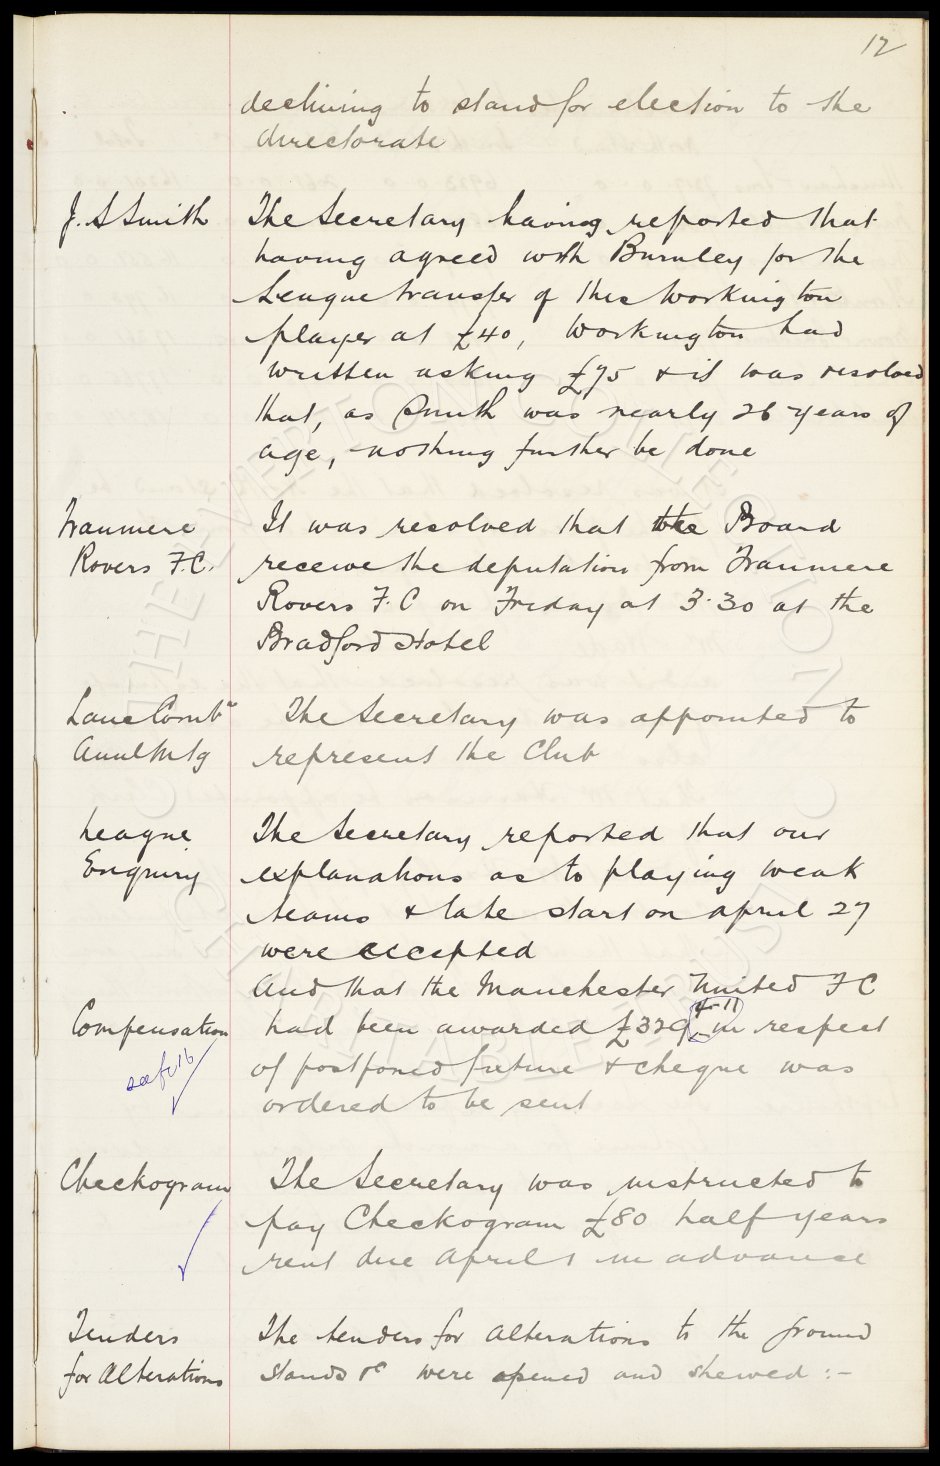 12
declining to stand for election to the
directorate
J. S Smith The Secretary having reported that
having agreed with Burnley for the
League transfer of this Workington
player at £40, Workington had
written asking £75 & it was resolved
that, as Smith was nearly 26 years of
age, nothing further be done
Tranmere It was resolved that the Board
Rovers F.C. receive the deputation from Tranmere
Rovers F.C on Friday at 3.30 at the
Bradford Hotel
Lanc Combn The Secretary was appointed to
Annl Mtg represent the Club
League The Secretary reported that our
Enquiry explanations as to playing weak
teams & late start on April 27
were accepted
And that the Manchester United F C
Compensation had been awarded £329 in respect
see fo 16 of postponed fixture & cheque was
ordered to be sent
Checkogram The Secretary was instructed to
pay Checkogram £80 half years
rent due April 1 in advance
Tenders The tenders for Alterations to the ground
for Alterations Stands &c were opened and shewed :-
THE EVERTON COLLECTION
CHARITABLE TRUST